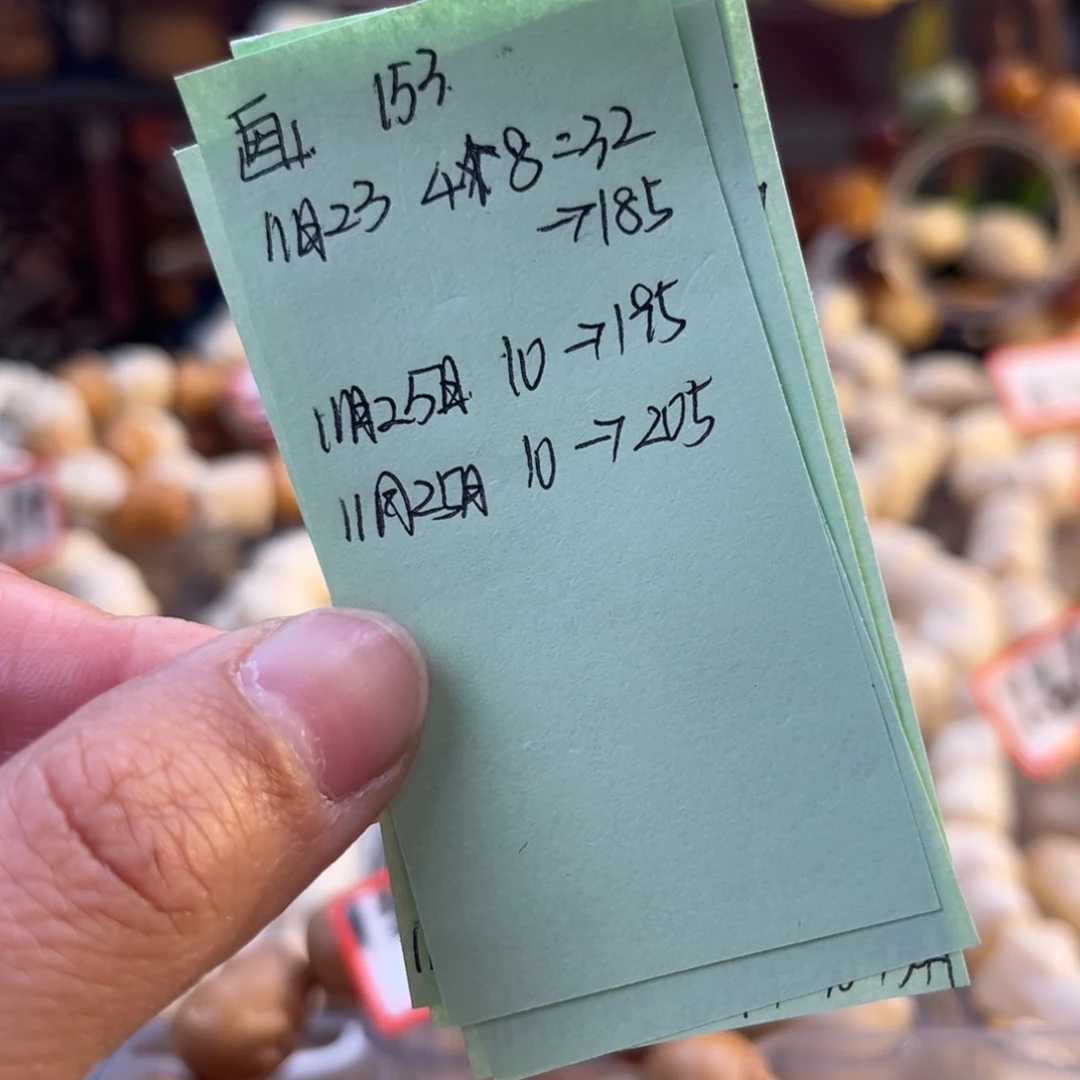 画 153
11月23 4*8=32
→185
11月25日 10→195
11月25日 10→205